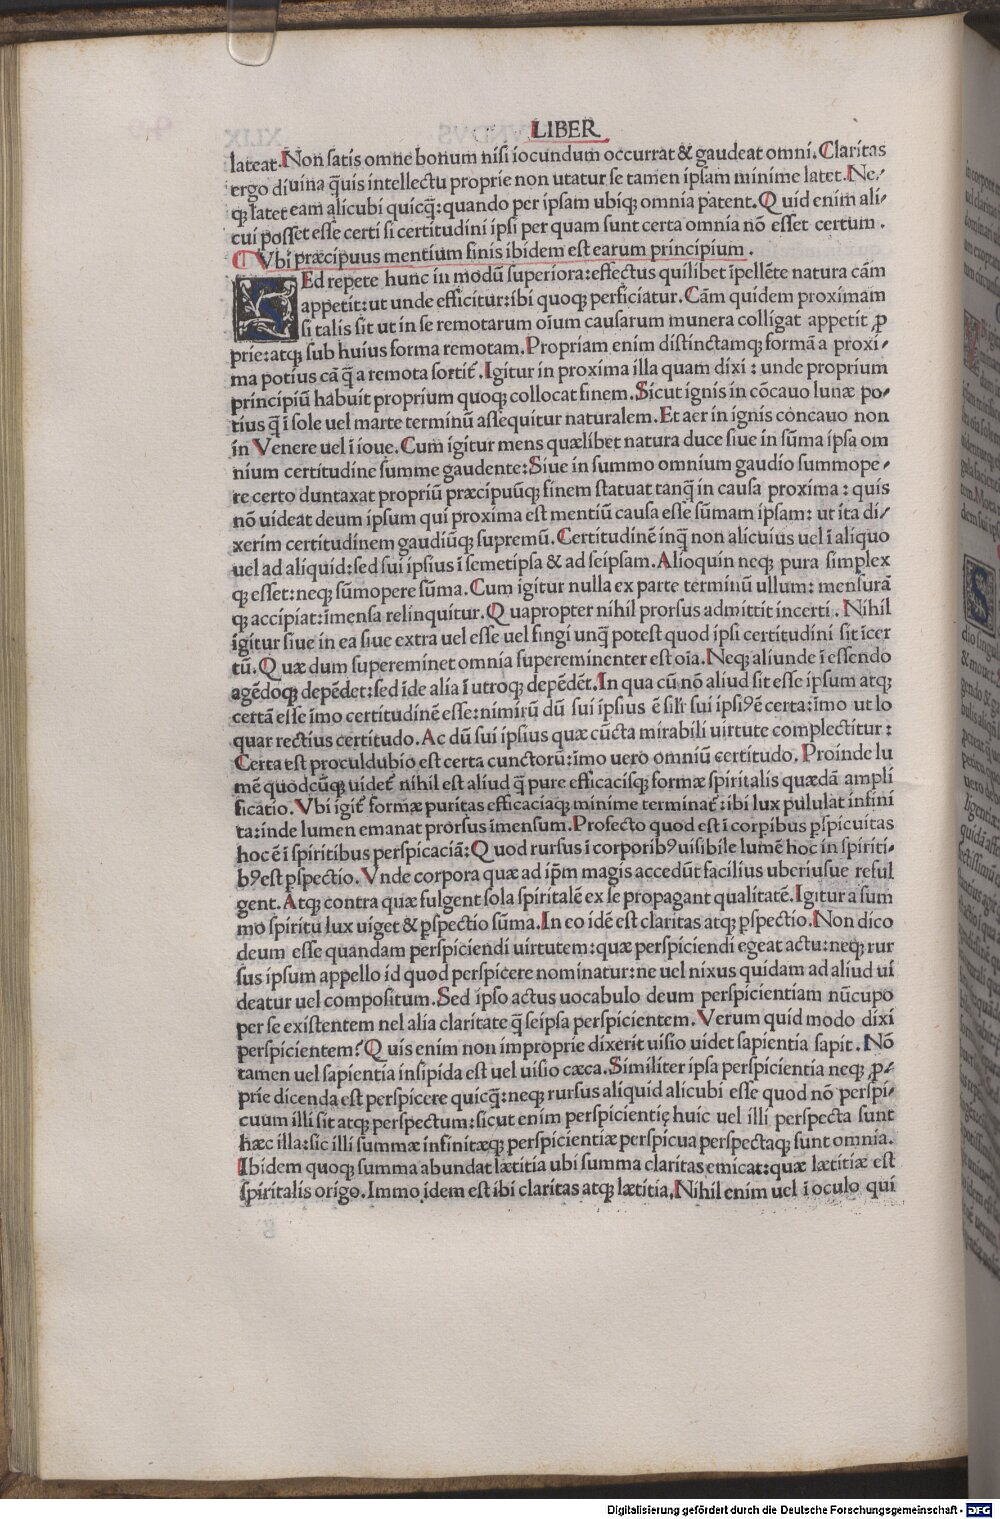 LIBER
lateat. Non satis omne bonum nisi iocundum occurrat & gaudeat omni. Claritas
ergo diuina q̃uis intellectu proprie non utatur se tamen ipsam minime latet. Ne⸗
qꝫ latet eam alicubi quicq̃: quando per ipsam ubiqꝫ omnia patent. Quid enim ali⸗
cui posset esse certi si certitudini ipsi per quam sunt certa omnia nõ esset certum.
Vbi præcipuus mentium finis ibidem est earum principium.
SEd repete hunc in modũ superiora: effectus quilibet ĩpellẽte natura cãm
appetit: ut unde efficitur: ibi quoqꝫ perficiatur. Cãm quidem proximam
si talis sit ut in se remotarum oĩum causarum munera colligat appetit ꝓ
prie: atqꝫ sub huius forma remotam. Propriam enim distinctamqꝫ formã a proxi⸗
ma potius cã q̃ a remota sortit̃. Igitur in proxima illa quam dixi: unde proprium
principiũ habuit proprium quoqꝫ collocat finem. Sicut ignis in cõcauo lunæ po⸗
tius q̃ ĩ sole uel marte terminũ assequitur naturalem. Et aer in ignis concauo non
in Venere uel ĩ ioue. Cum igitur mens quælibet natura duce siue in sũma ipsa om
nium certitudine summe gaudente: Siue in summo omnium gaudio summope⸗
re certo duntaxat propriũ præcipuũqꝫ finem statuat tanq̃ in causa proxima: quis
nõ uideat deum ipsum qui proxima est mentiũ causa esse sũmam ipsam: ut ita di⸗
xerim certitudinem gaudiũqꝫ supremũ. Certitudinẽ inq̃ non alicuius uel ĩ aliquo
uel ad aliquid: sed sui ipsius ĩ semetipsa & ad seipsam. Alioquin neqꝫ pura simplex
qꝫ esset: neqꝫ sũmopere sũma. Cum igitur nulla ex parte terminũ ullum: mensurã
qꝫ accipiat: ĩmensa relinquitur. Quapropter nihil prorsus admittit incerti. Nihil
igitur siue in ea siue extra uel esse uel fingi unq̃ potest quod ipsi certitudini sit ĩcer
tũ. Quæ dum supereminet omnia supereminenter est oĩa. Neqꝫ aliunde ĩ essendo
agẽdoqꝫ depẽdet: sed ĩde alia ĩ utroqꝫ depẽdẽt. In qua cũ nõ aliud sit esse ipsum atqꝫ
certã esse ĩmo certitudinẽ esse: nimirũ dũ sui ipsius ẽ silr̃ sui ipsiꝰ ẽ certa: ĩmo ut lo
quar rectius certitudo. Ac dũ sui ipsius quæ cũcta mirabili uirtute complectitur:
Certa est proculdubio est certa cunctorũ: ĩmo uero omniũ certitudo. Proinde lu
mẽ quodcũqꝫ uidet̃ nihil est aliud q̃ pure efficacisqꝫ formæ spiritalis quædã ampli
ficatio. Vbi igit̃ formæ puritas efficaciaqꝫ minime terminat̃: ibi lux pululat infini
ta: inde lumen emanat prorsus ĩmensum. Profecto quod est ĩ corpibus ꝑspicuitas
hoc ẽ ĩ spiritibus perspicaciã: Quod rursus ĩ corporibꝰ uisibile lumẽ hoc in spiriti⸗
bꝰ est ꝑspectio. Vnde corpora quæ ad ip̃m magis accedũt facilius uberiusue reful
gent. Atqꝫ contra quæ fulgent sola spiritalẽ ex se propagant qualitatẽ. Igitur a sum
mo spiritu lux uiget & ꝑspectio sũma. In eo idẽ est claritas atqꝫ ꝑspectio. Non dico
deum esse quandam perspiciendi uirtutem: quæ perspiciendi egeat actu: neqꝫ rur
sus ipsum appello id quod perspicere nominatur: ne uel nixus quidam ad aliud ui
deatur uel compositum. Sed ipso actus uocabulo deum perspicientiam nũcupo
per se existentem nel alia claritate q̃ seipsa perspicientem. Verum quid modo dixi
perspicientem? Quis enim non improprie dixerit uisio uidet sapientia sapit. Nõ
tamen uel sapientia insipida est uel uisio cæca. Similiter ipsa perspicientia neqꝫ ꝓ⸗
prie dicenda est perspicere quicq̃: neqꝫ rursus aliquid alicubi esse quod nõ perspi⸗
cuum illi sit atqꝫ perspectum: sicut enim perspicientię huic uel illi perspecta sunt
hæc illa: sic illi summæ infinitæqꝫ perspicientiæ perspicua perspectaqꝫ sunt omnia.
Ibidem quoqꝫ summa abundat lætitia ubi summa claritas emicat: quæ lætitiæ est
spiritalis origo. Immo idem est ibi claritas atqꝫ lætitia. Nihil enim uel ĩ oculo qui
Digitalisierung gefördert durch die Deutsche Forschungsgemeinschaft - DFG